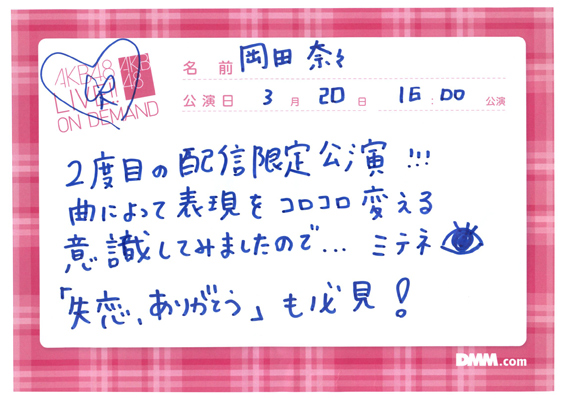 AKB48
LIVE!!
ON DEMAND
AKB
48
名前 岡田奈々
公演日 3月20日 16:00 公演
2度目の配信限定公演!!!
曲によって表現をコロコロ変える
意識してみましたので... ミテネ
「失恋、ありがとう」も必見!
DMM.com